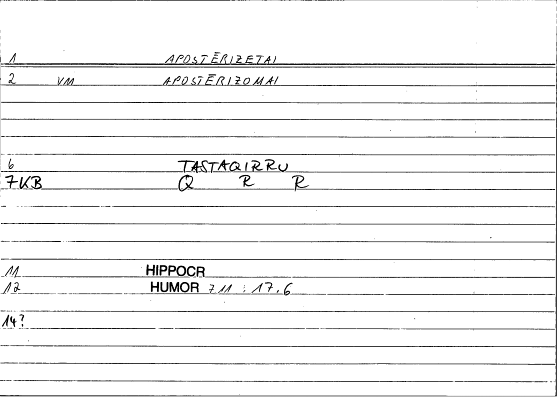 1 APOSTĒRIZETAI
2 VM APOSTĒRIZOMAI
6 TASTAQIRRU
7KB Q R R
11 HIPPOCR
12 HUMOR 711 : 17.6
14?